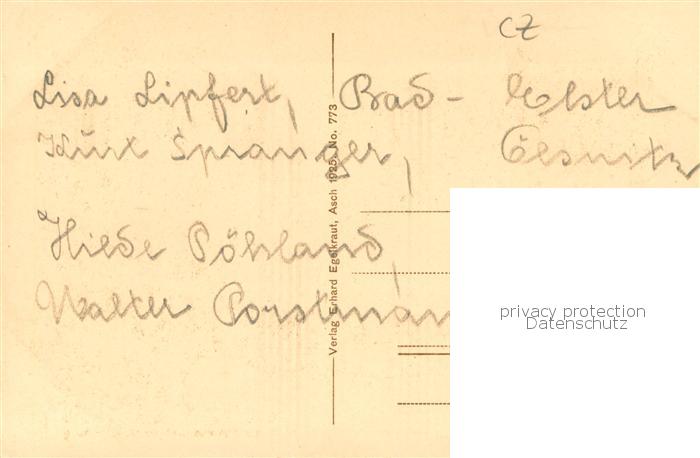 CZ
Lisa Lipfert, Bad-Elster
Kurt Spranger, Ölsnitz
Hilde Pöhland,
Walter Porstman
Verlag Erhard Egelkraut, Asch 1925. No. 773
privacy protection
Datenschutz